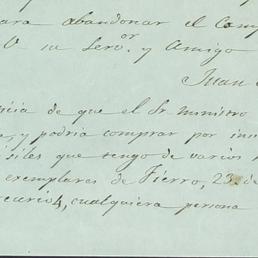 para abandonar el Camp
V. su Servor. y Amigo
Juan
icia de que el Sr. Ministro
a, y podria comprar por inu
siles que tengo de varios
exemplares de Fierro, 23 de
ercurio 4, cualquiera persona